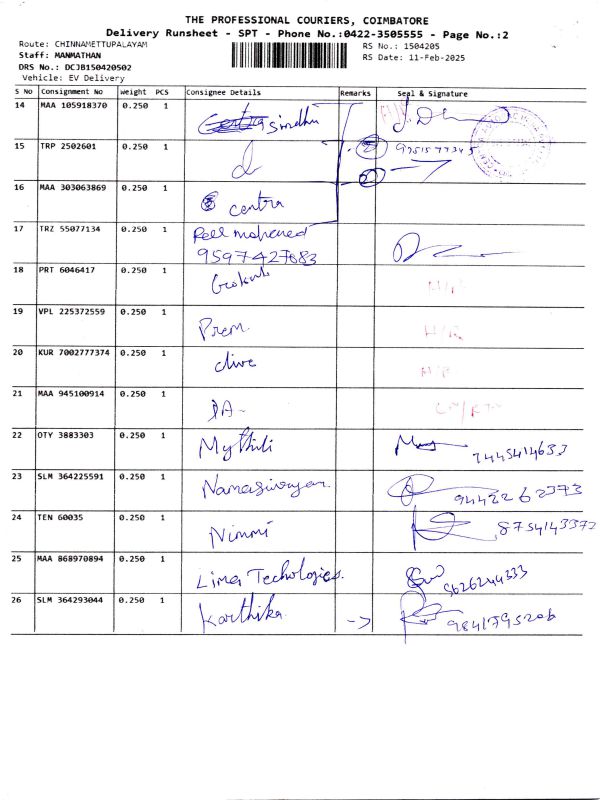 THE PROFESSIONAL COURIERS, COIMBATORE
Delivery Runsheet - SPT - Phone No.:0422-3505555 - Page No.:2
Route: CHINNAMETTUPALAYAM RS No.: 1504205
Staff: MANMATHAN RS Date: 11-Feb-2025
DRS No.: DCJB150420502
Vehicle: EV Delivery
S No Consignment No Weight PCS Consignee Details Remarks Seal & Signature
14 MAA 105918370 0.250 1 sindhu
15 TRP 2502601 0.250 1 d 2 9751577345
16 MAA 303063869 0.250 1 centra 2
17 TRZ 55077134 0.250 1 mohamed
9597427683
18 PRT 6046417 0.250 1 N/R
19 VPL 225372559 0.250 1 Prem N/R
20 KUR 7002777374 0.250 1 clive N/R
21 MAA 945100914 0.250 1 DA-
22 OTY 3883303 0.250 1 Mythili 7445414633
23 SLM 364225591 0.250 1 Namasivayam 9442262373
24 TEN 60035 0.250 1 Nimmi 8754143373
25 MAA 868970894 0.250 1 Lima Techologies. 5626244333
26 SLM 364293044 0.250 1 Karthika -> 9841795206